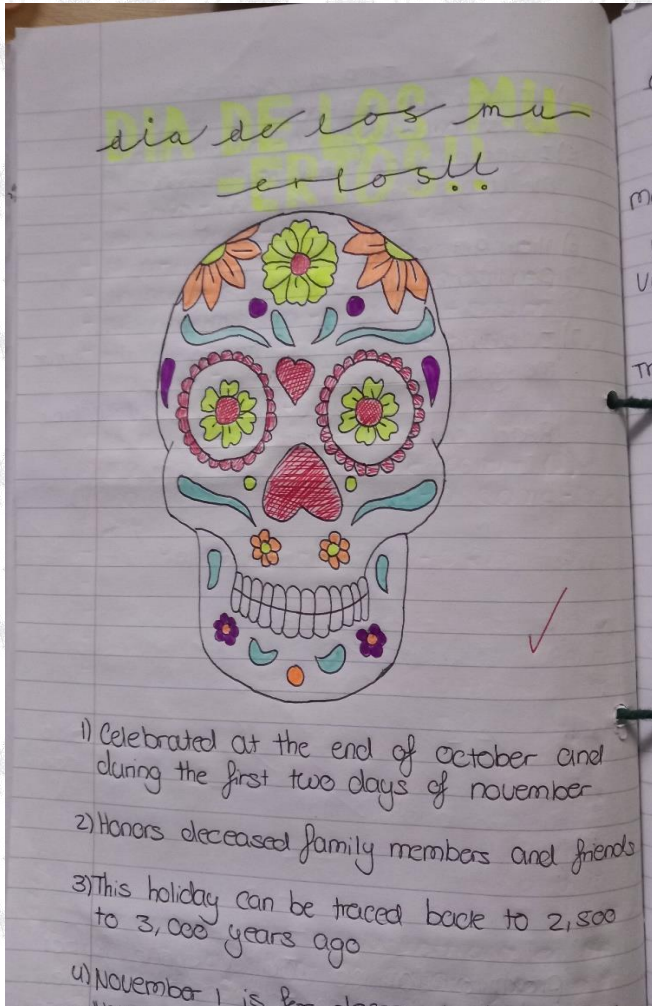 dia de los mu-
-ertos!!
1) Celebrated at the end of october and
during the first two days of november
2) Honors deceased family members and friends
3) This holiday can be traced back to 2,500
to 3,000 years ago
4) November 1 is for